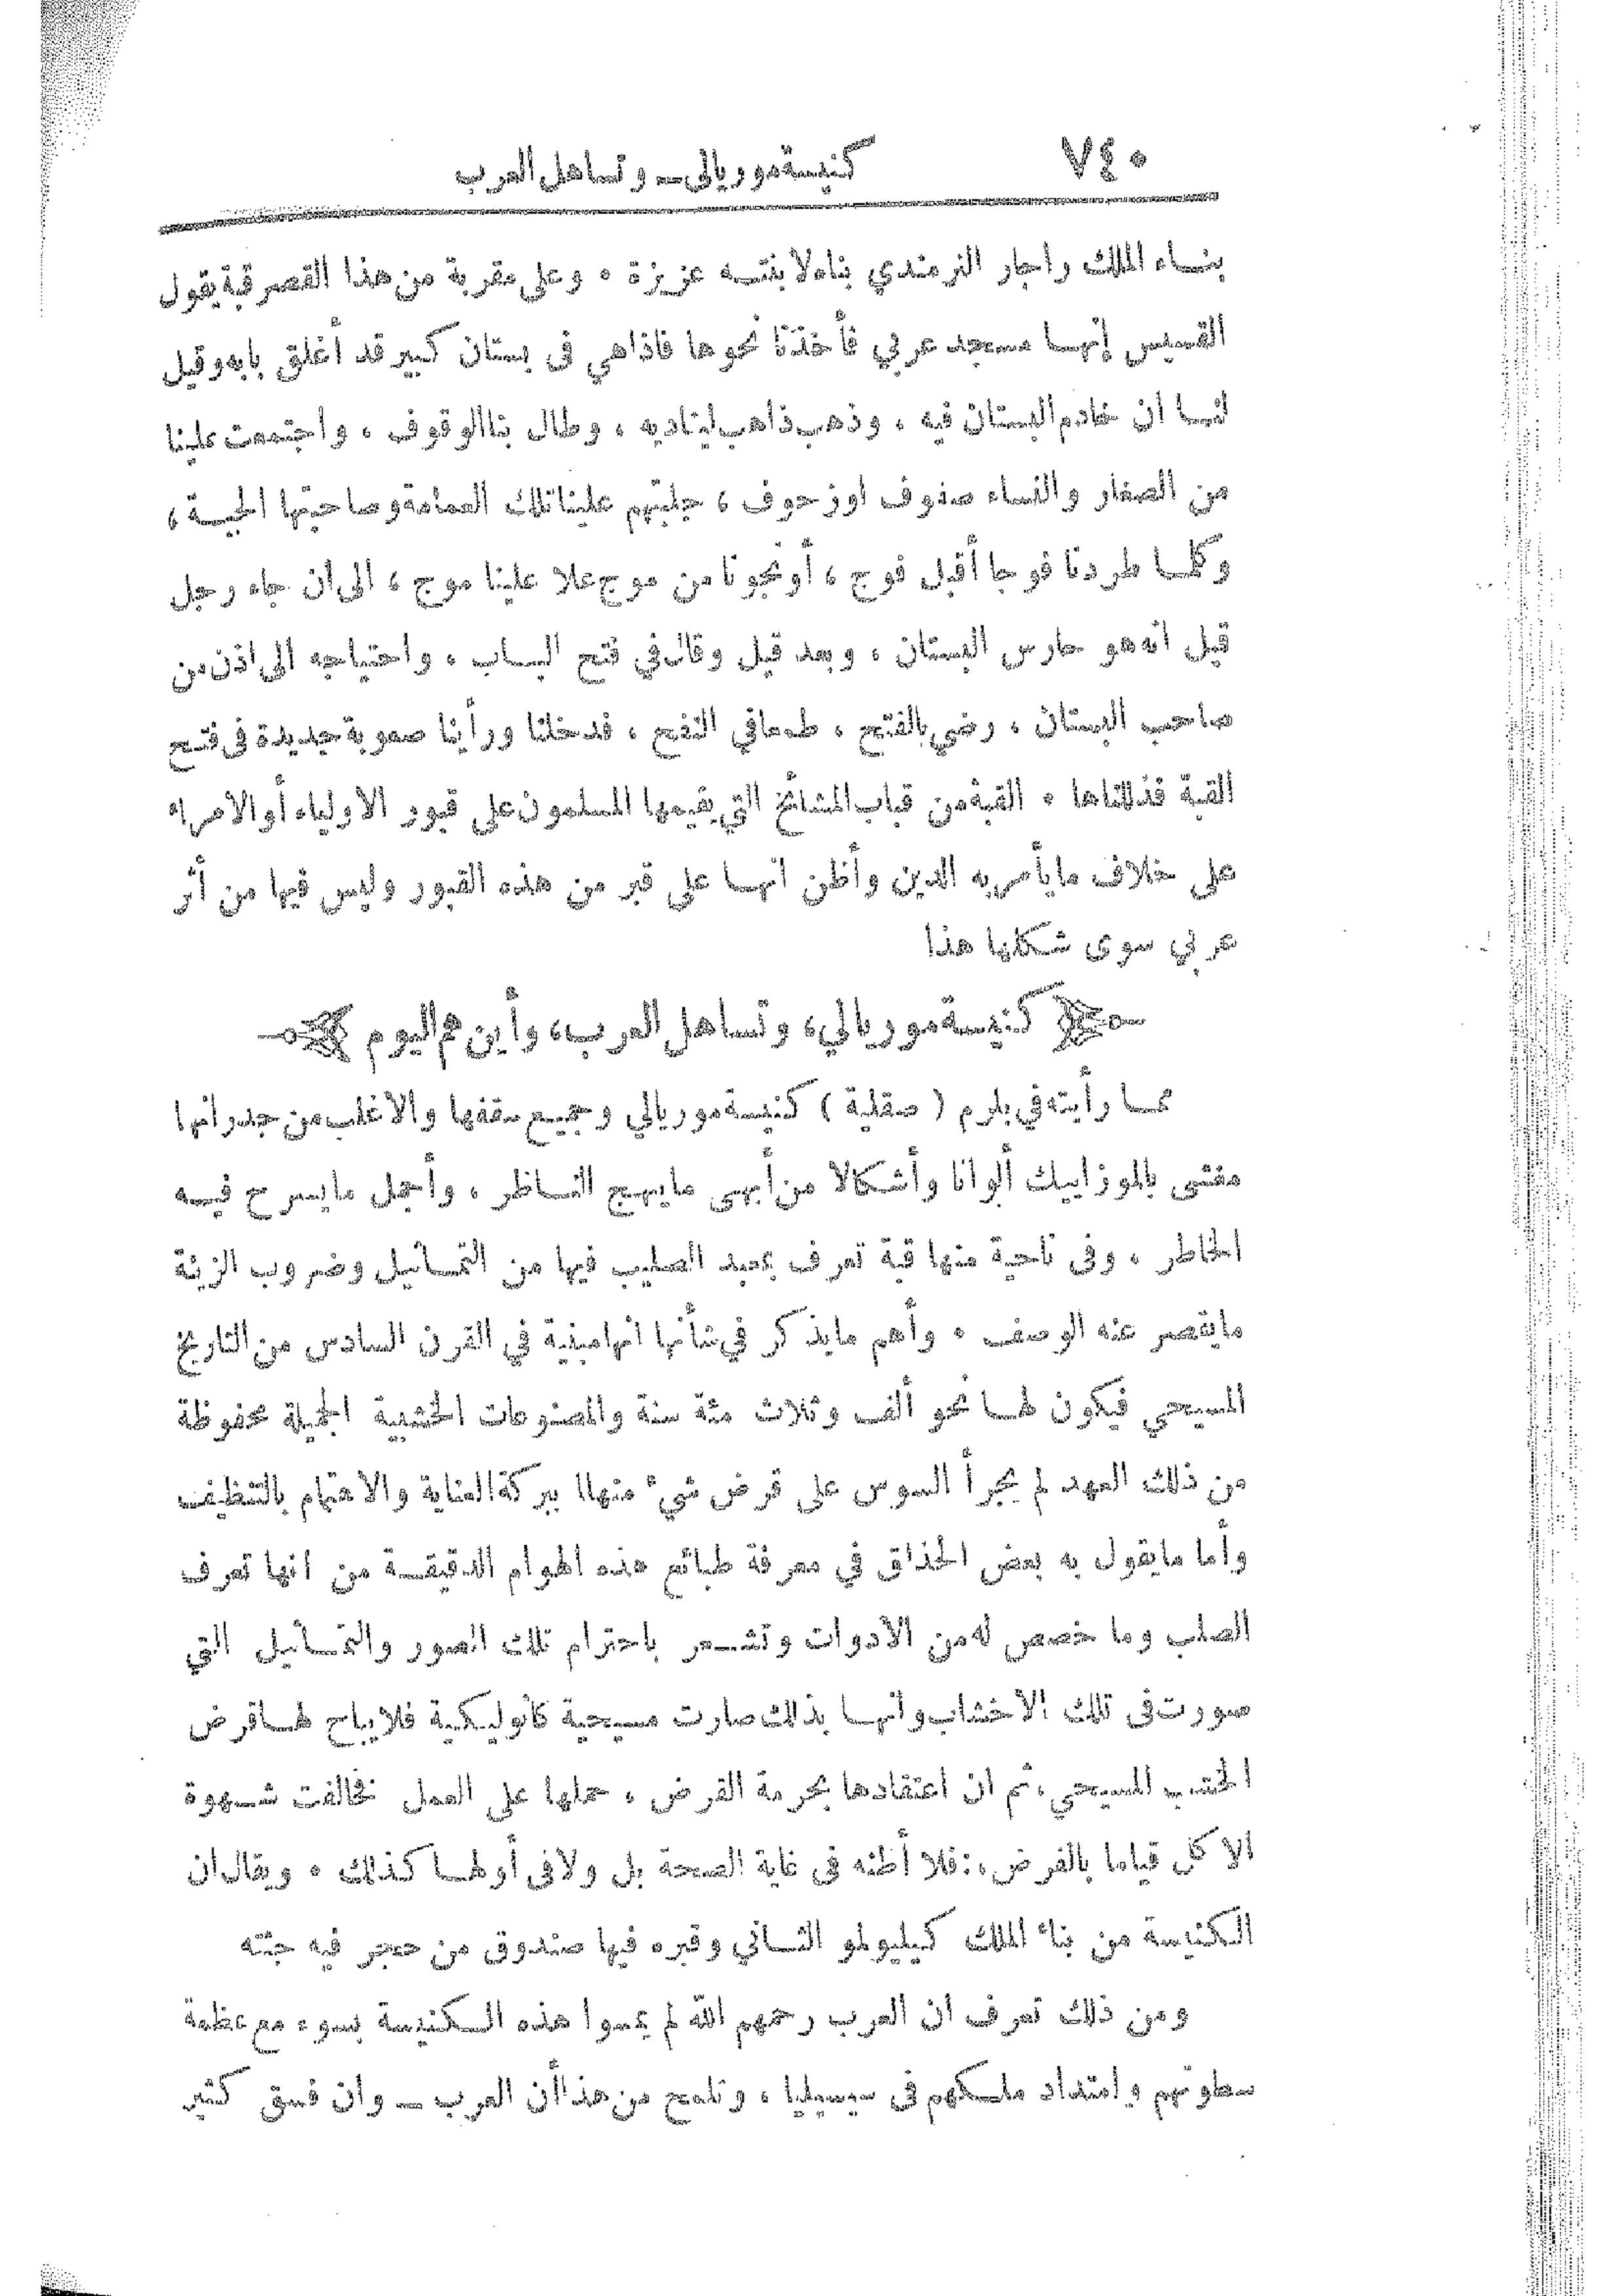 ٧٤٠ كنيسة موريالى ــ وتساهل العرب
بنــاء الملك راجار النرمندي بناه لابنتــه عزيزة ٠ وعلى مقربة من هذا القصر قبة يقول
القسيس إنهــا مسجد عربي فأخذنا نحوها فاذاهي فى بستان كبير قد أغلق بابه وقيل
لنــا ان خادم البستان فيه ، وذهب ذاهب ليناديه ، وطال بنا الوقوف ، واجتمعت علينا
من الصغار والنساء صفوف اوزحوف ، جلبتهم علينا تلك العمامة وصاحبتها الجبــة ،
وكلــا طردنا فوجا أقبل فوج ، أو نجونا من موج علا علينا موج ، الى ان جاء رجل
قيل انه هو حارس البستان ، وبعد قيل وقال في فتح البــاب ، واحتياجه الى اذن من
صاحب البستان ، رضي بالفتح ، طمعا في النفح ، فدخلنا ورأينا صعوبة جديدة فى فتح
القبة فذللناها ٠ القبة من قباب المشائخ التي يقيمها المسلمون على قبور الاولياء أو الامراء
على خلاف ما يأمر به الدين وأظن انهــا على قبر من هذه القبور وليس فيها من أثر
عربي سوى شكلها هذا
كنيسة موريالي ، وتساهل العرب ، وأين هم اليوم
ممــا رأيته في بلرم ( صقلية ) كنيسة موريالي وجميــع سقفها والاغلب من جدرانها
مغشى بالموزاييك ألوانا وأشكالا من أبهى ما يبهج النــاظر ، وأجمل ما يسرح فيــه
الخاطر ، وفى ناحية منها قبة تعرف بمعبد الصليب فيها من التمــاثيل وضروب الزينة
مايقصر عنه الوصف ٠ وأهم ما يذكر في شأنها انها مبنية في القرن السادس من التاريخ
المسيحي فيكون لهــا نحو ألف وثلاث مئة سنة والمصنوعات الخشبية الجميلة محفوظة
من ذلك العهد لم يجرأ السوس على قرض شيء منها ببركة العناية والاهتمام بالتنظيف
وأما مايقول به بعض الحذاق في معرفة طبائع هذه الهوام الدقيقــة من انها تعرف
الصلب وما خصص له من الادوات وتشــعر باحترام تلك الصور والتمــاثيل التي
صورت فى تلك الاخشاب وانهــا بذلك صارت مسيحية كاثوليكية فلا يباح لهــا قرض
الخشب المسيحي ، ثم ان اعتقادها بحرمة القرض ، حملها على العمل فخالفت شــهوة
الاكل قياما بالفرض ، : فلا أظنه فى غاية الصحة بل ولا فى أولهــا كذلك ٠ ويقال ان
الكنيسة من بناء الملك كيليولمو الثــاني وقبره فيها صندوق من حجر فيه جثته
ومن ذلك تعرف ان العرب رحمهم الله لم يمسوا هذه الــكنيسة بسوء مع عظمة
سطوتهم وامتداد ملــكهم فى سيسيليا ، وتلمح من هذا أن العرب ــ وان فسق كثير